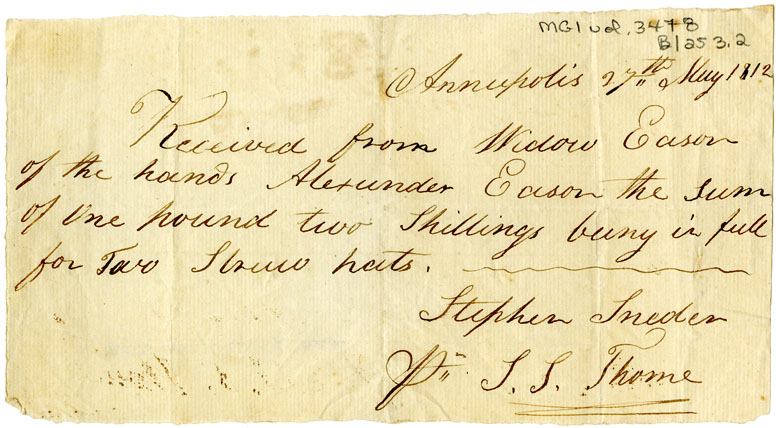 MG1 vol. 3478
B/253.2
Annapolis 27th May 1812
Received from Widow Eason
of the hands Alexander Eason the sum
of One pound two Shillings being in full
for Two Straw hats.
Stephen Sneden
pr S. S. Thorne